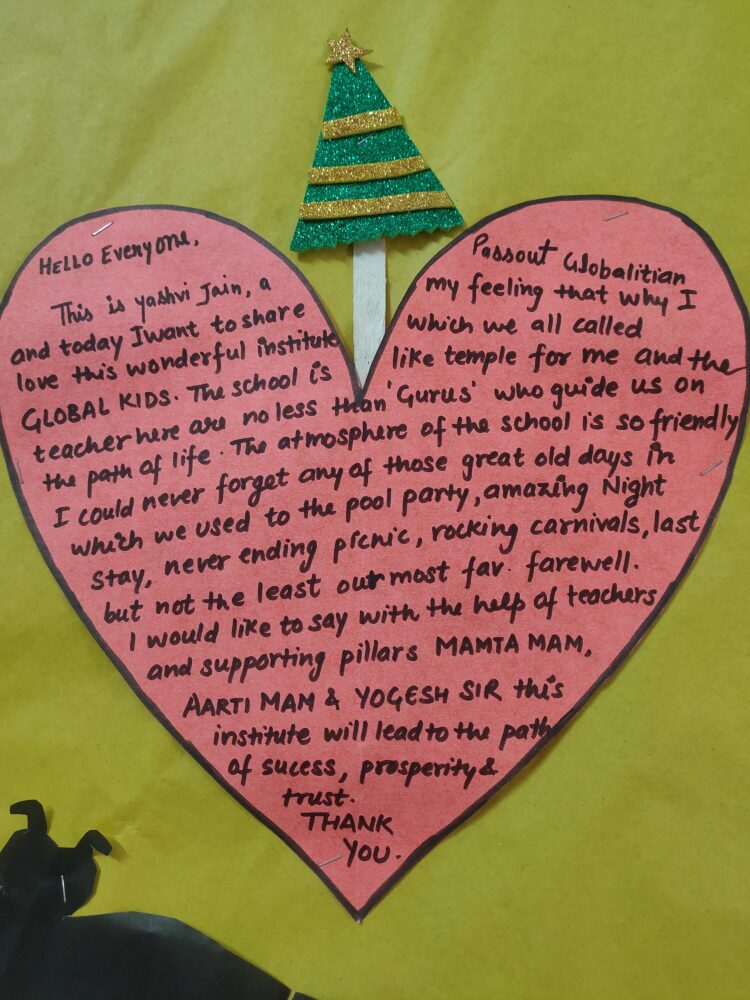 HELLO Everyone,
This is yashvi Jain, a Passout Globalitian
and today I want to share my feeling that why I
love this wonderful institute which we all called
GLOBAL KIDS. The school is like temple for me and the
teacher here are no less than 'Gurus' who guide us on
the path of life. The atmosphere of the school is so friendly
I could never forget any of those great old days in
which we used to the pool party, amazing Night
Stay, never ending picnic, rocking carnivals, last
but not the least our most fav. farewell.
I would like to say with the help of teachers
and supporting pillars MAMTA MAM,
AARTI MAM & YOGESH SIR this
institute will lead to the path
of sucess, prosperity &
trust.
THANK
YOU.